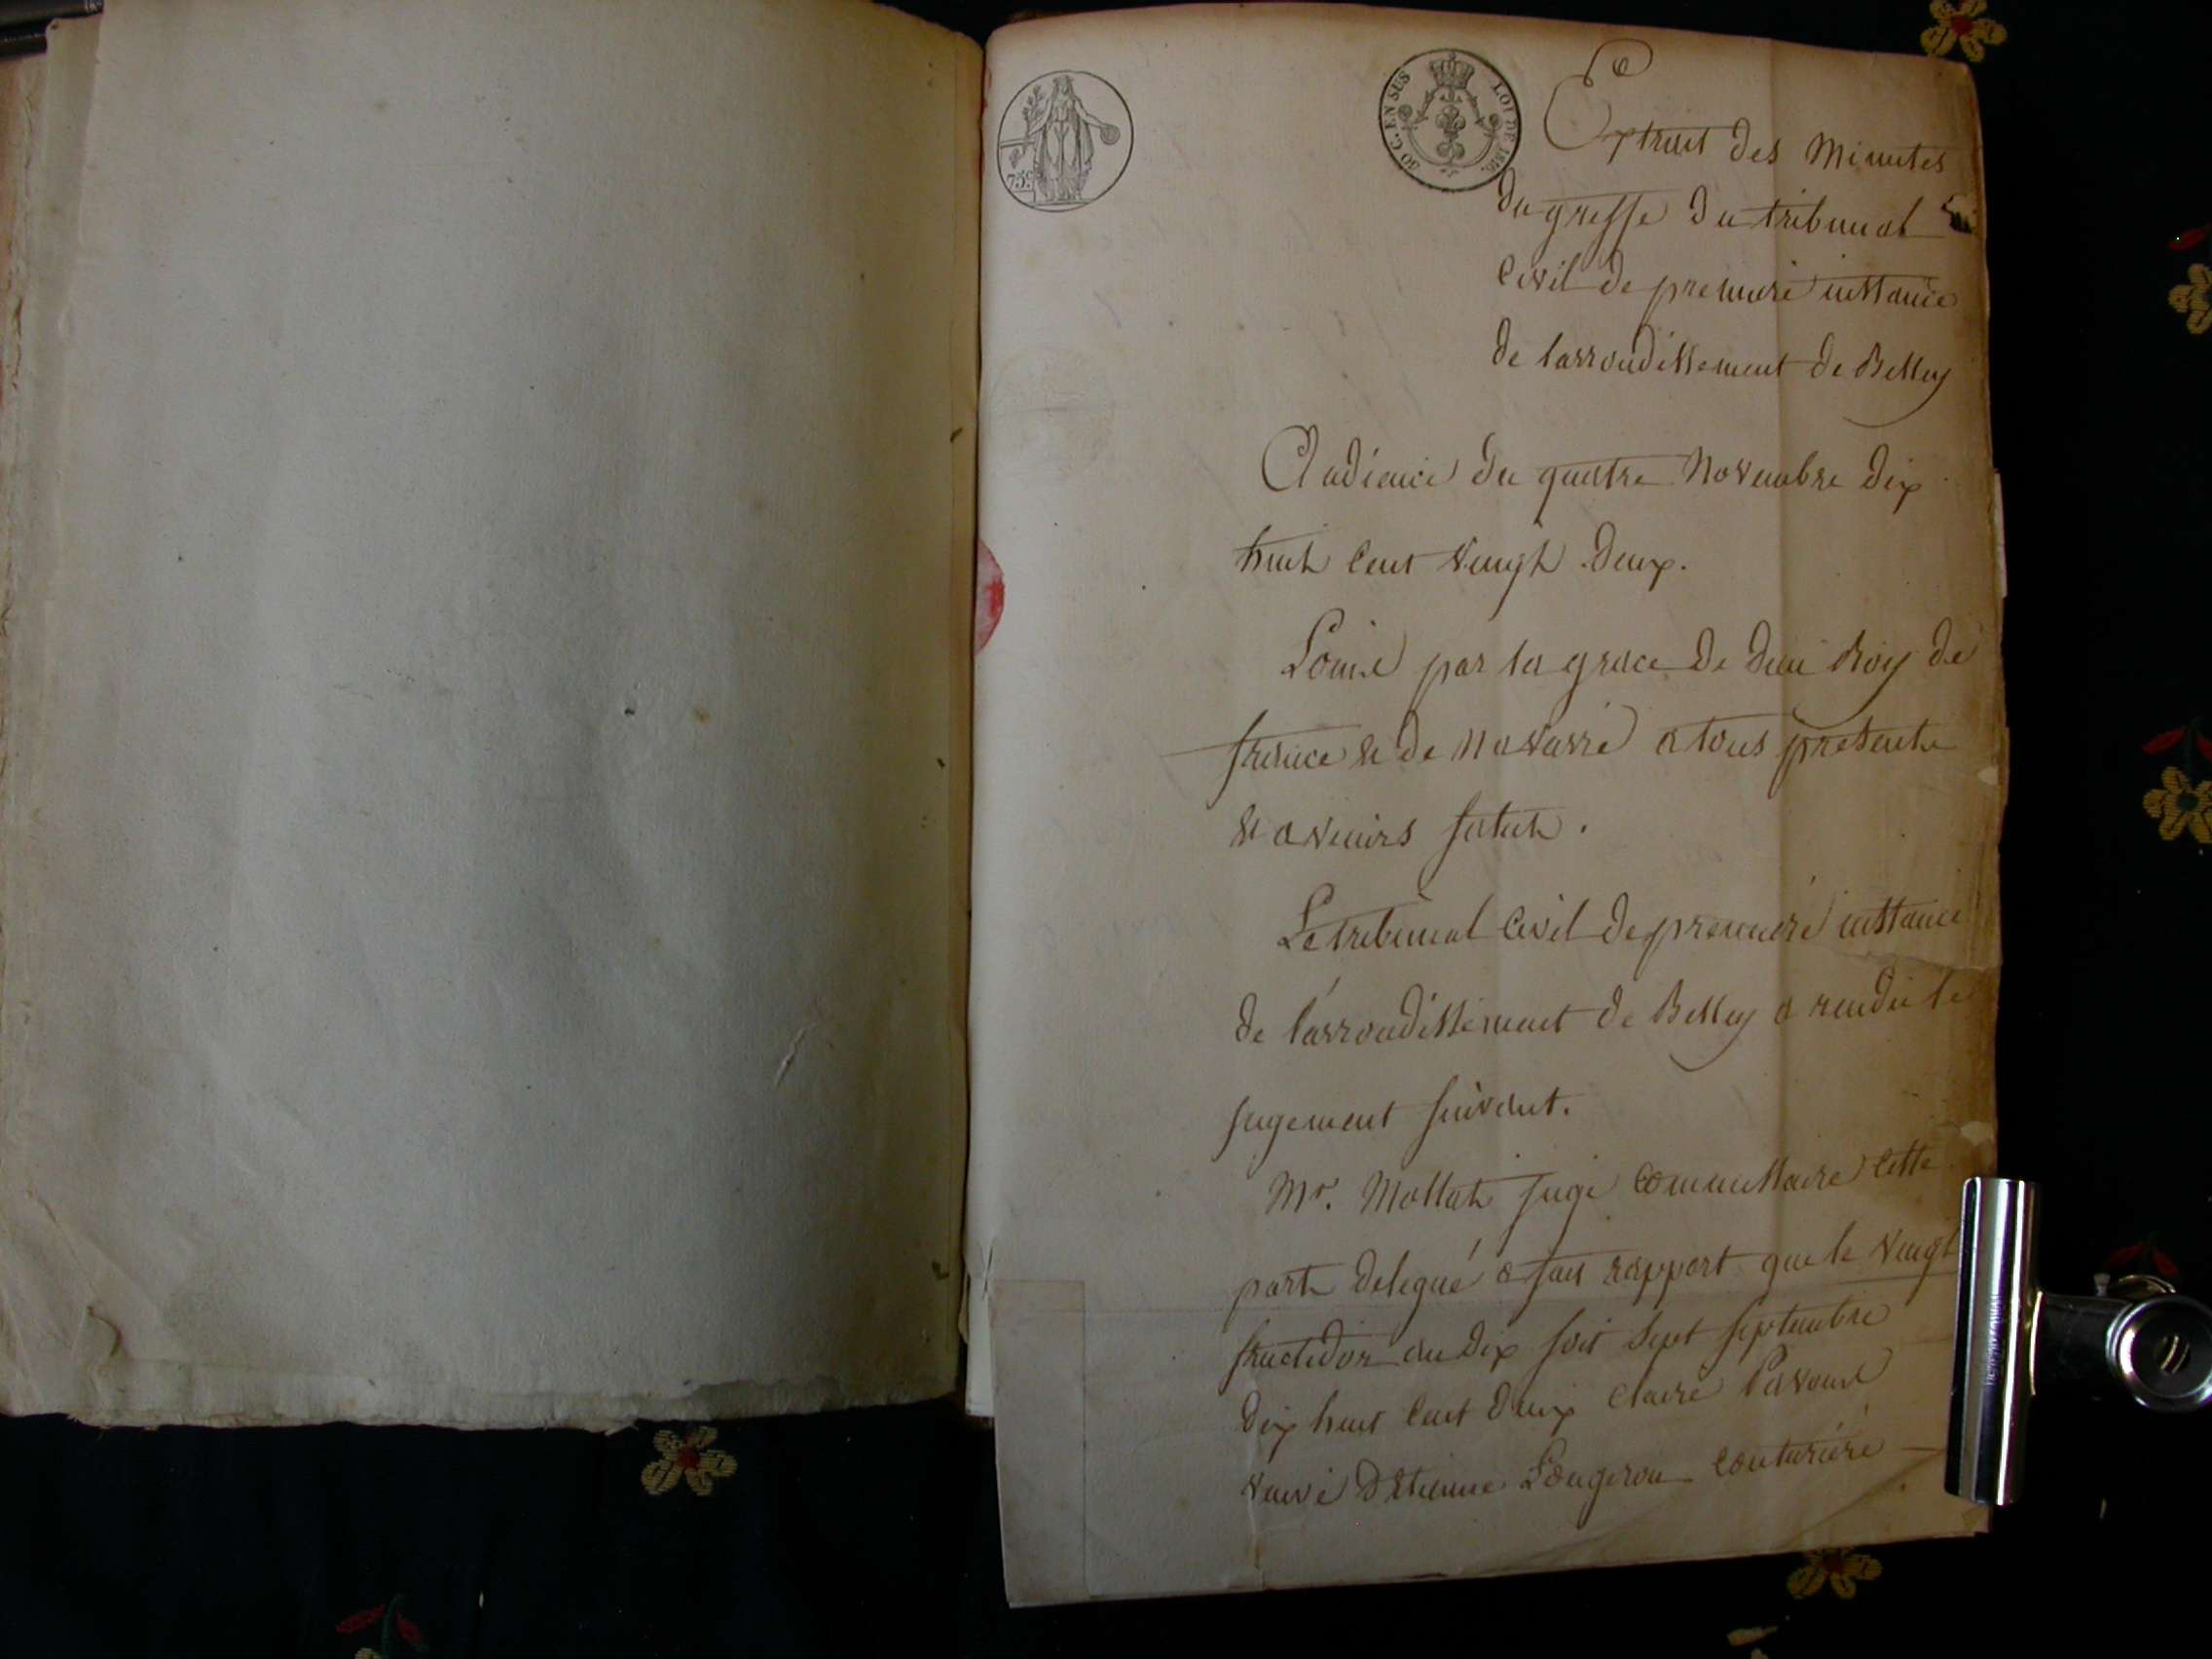 75c.
30 C. EN SUS LOI DE 1816.
Extrait des Minutes
du greffe du tribunal
Civil de premiere instance
de larrondissement de Belley
Audience du quatre Novembre dix
huit Cent Vingt deux.
Louis par la grace de dieu Roy de
france et de Navarre a tous presents
et avenirs salut.
Le tribunal Civil de premiere instance
de l'arrondissement de Belley a rendu le
jugement suivant.
Mr. Mollat juge Commissaire Cette
part delegué a fait rapport que le Vingt
fructidor an dix soit sept septembre
dix huit Cent deux Claire
veuve d'Etienne Longeron Couturiere